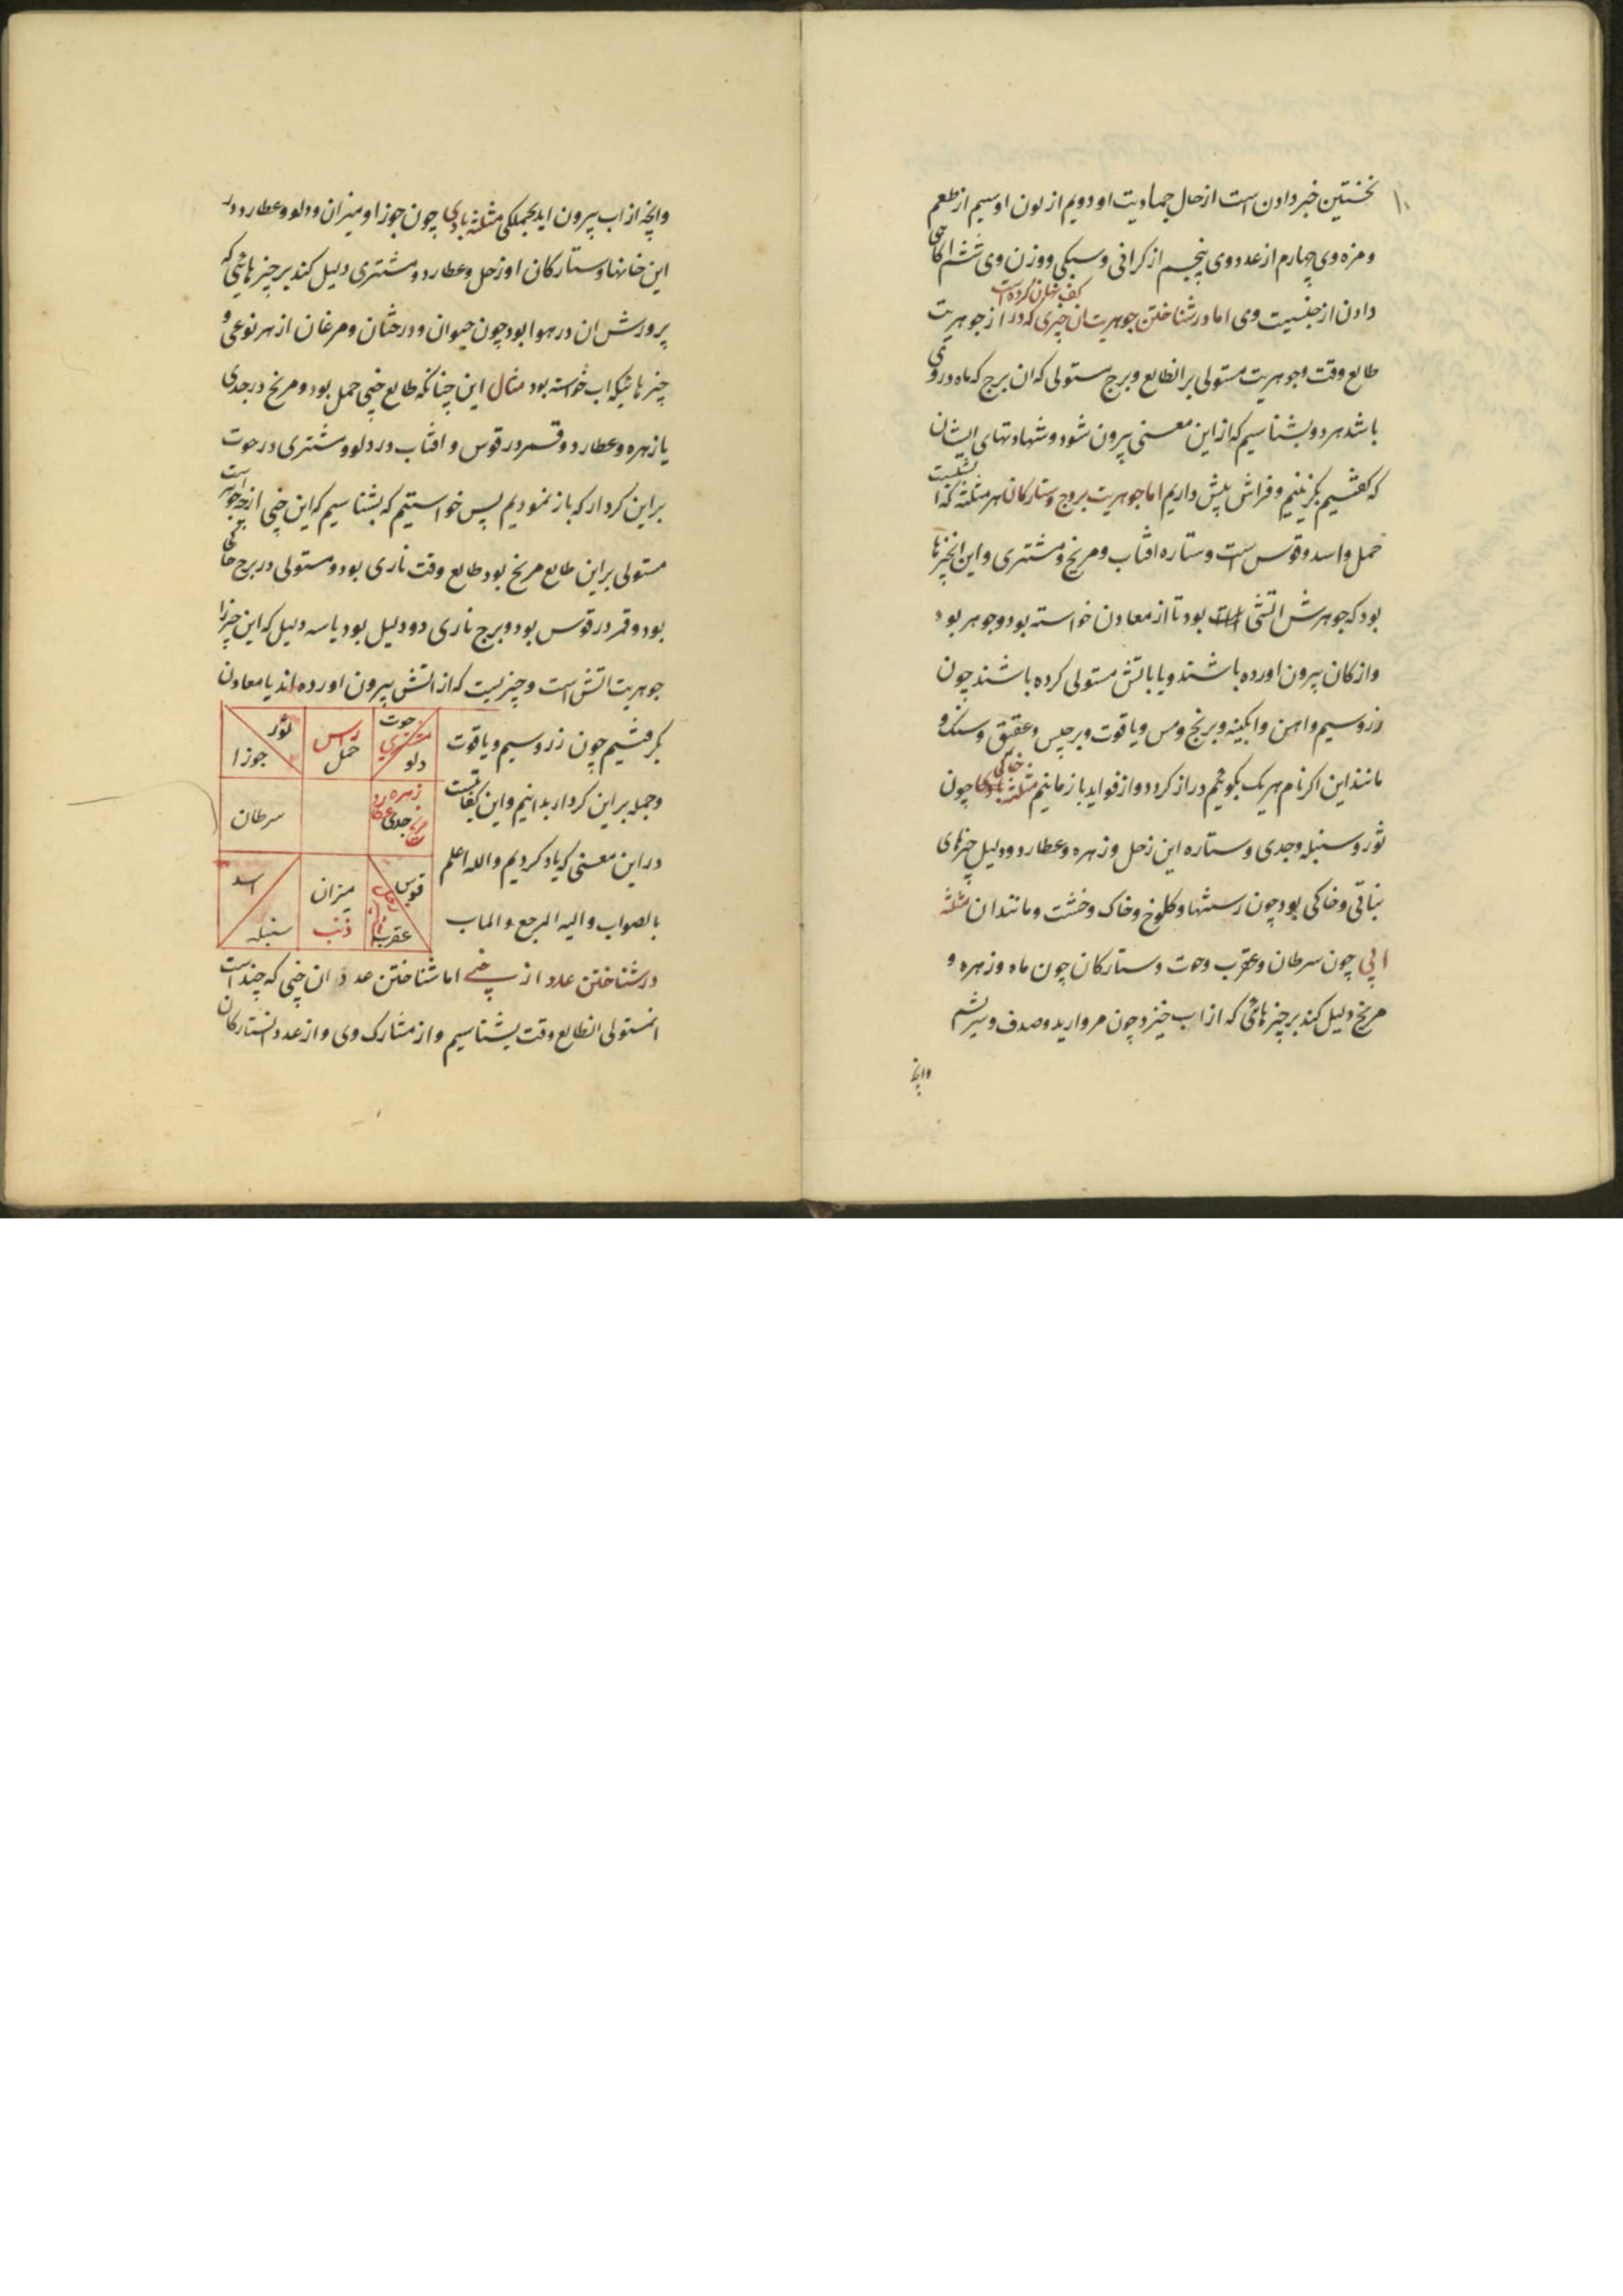 ۱۰
نخستین خبر دادن است از حال جمادیت او دویم از لون او سیم از طعم
و مزه وی چهارم از عدد وی پنجم از کرانی و سبکی و وزن وی ششم اکاهی
دادن از جنسیت وی اما در شناختن جوهریت ان چیزی که در کف نهان کرده است از جوهریت
طالع وقت و جوهریت مستولی بر انطالع و برج مستولی که ان برج که ماه در وی
باشد هر دو بشناسیم که از این معنی بیرون شود و شهادتهای ایشان
که کفتیم بکزینیم و فراش پیش داریم اما جوهریت بروج و ستارکان هر مثلثه که
حمل و اسد و قوس است و ستاره افتاب و مریخ و مشتری و این چیزها
بود که جوهرش اتشی بود تا از معادن خواسته بود و جوهر بود
و از کان بیرون اورده باشند و یا باتش مستولی کرده باشند چون
زر و سیم و اهن و ابکینه و برنج و مس و یاقوت و برجیس و عقیق و سنک و
مانند این اکر نام هر یک بکوییم دراز کردد و از فواید باز مانیم مثلثه خاکی چون
ثور و سنبله و جدی و ستاره این زحل و زهره و عطارد و دلیل چیزهای
نباتی و خاکی بود چون رستنها و کلوخ و خاک و خشت و مانند ان مثلثه
ابی چون سرطان و عقرب و حوت و ستارکان چون ماه و زهره و
مریخ دلیل کند بر چیزهائی که از اب خیزد چون مروارید و صدف و سریشم
وانچه
وانچه از اب بیرون اید بجملکی مثلثه بادی چون جوزا و میزان و دلو و عطارد در
این خانها و ستارکان او زحل و عطارد و مشتری دلیل کند بر چیزهائی که
پرورش ان در هوا بود چون حیوان و درختان و مرغان از هر نوعی و
چیزهائیکه اب خواسته بود مثال این چنانکه طالع خبی حمل بود و مریخ در جدی
یا زهره و عطارد و قمر در قوس و افتاب در دلو و مشتری در حوت
بر این کردار که باز نمودیم پس خواستیم که بشناسیم که این خبی از چه جوهر است
مستولی بر این طالع مریخ بود طالع وقت ناری بود و مستولی در برج خاکی
بود و قمر در قوس بود و برج ناری دو دلیل بود یا سه دلیل که این چیز را
جوهریت اتش است و چیزیست که از اتش بیرون اورده اند یا معادن
بکرفتیم چون زر و سیم و یاقوت
و جمله بر این کردار بدانیم و این کفایتست
در این معنی که یاد کردیم والله اعلم
بالصواب والیه المرجع والماب
حوت مشتری دلو
راس حمل
ثور جوزا
زهره جدی عطارد مریخ
سرطان
قوس عقرب
میزان ذنب
اسد سنبله
در شناختن عدد از خبی اما شناختن عدد ان خبی که چند است
از مستولی انطالع وقت بشناسیم و از مشارک وی و از عدد ان ستارکان